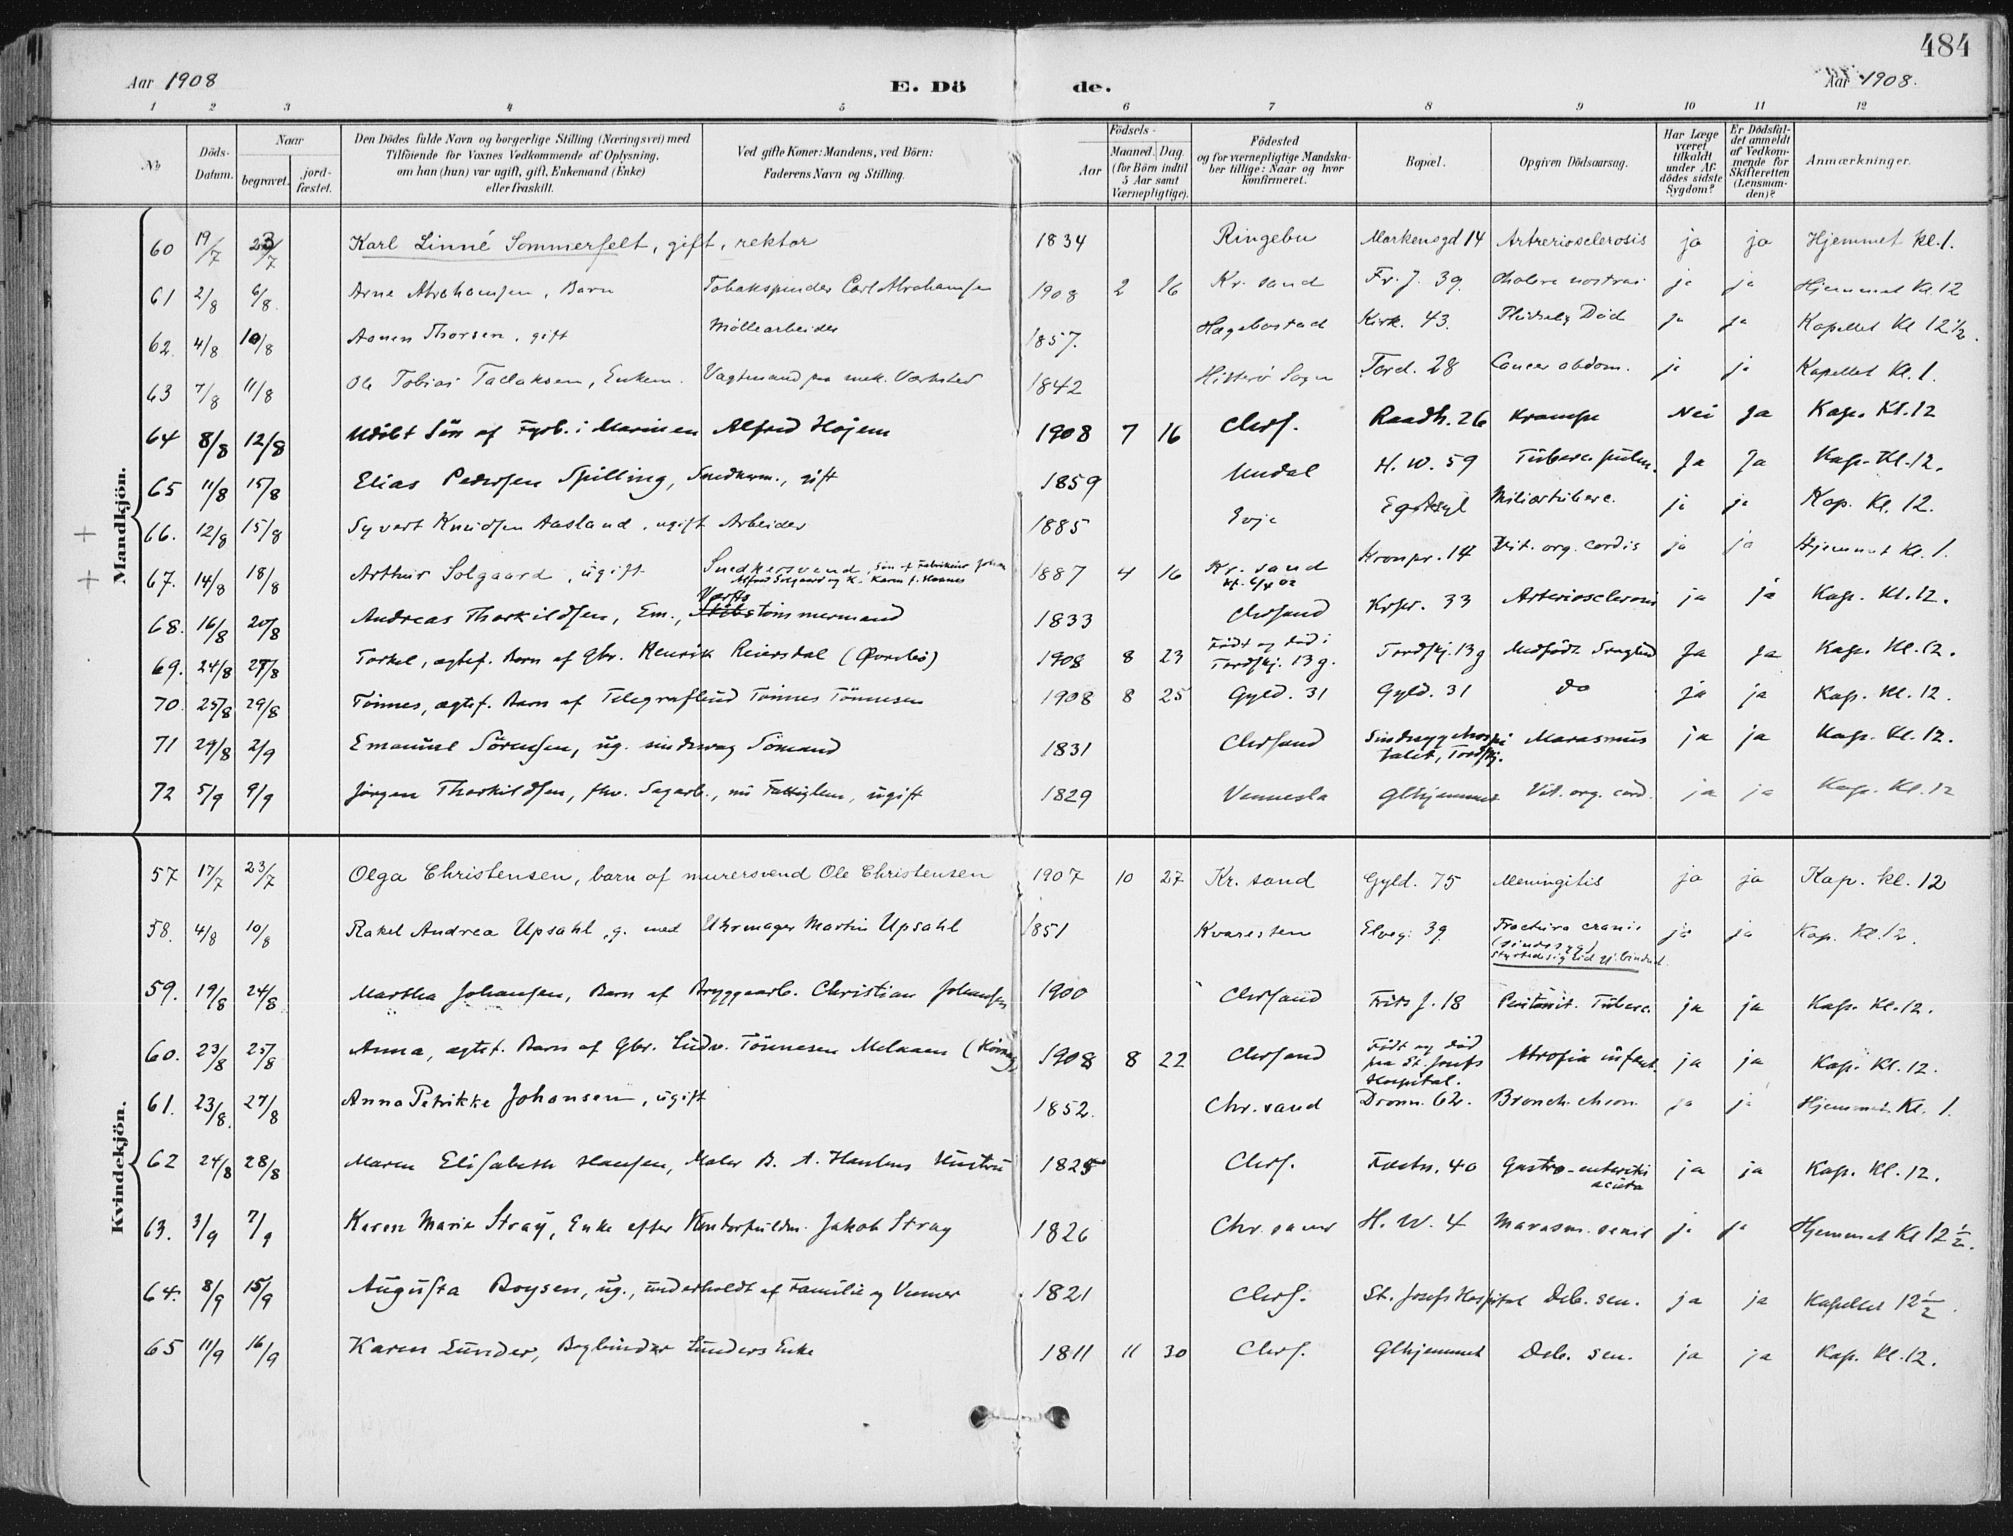 484
Aar 1908 E. Döde. Aar 1908.
1 2 3 4 5 6 7 8 9 10 11 12
No
Döds-Datum.
Naar
begravet.
jord-fæstet.
Den Dödes fulde Navn og borgerlige Stilling (Næringsvei) med
Tilföiende for Voxnes Vedkommende af Oplysning,
om han (hun) var ugift, gift, Enkemand (Enke)
eller fraskilt.
Ved gifte Koner: Mandens, ved Börn:
Faderens Navn og Stilling.
Födsels-
Aar
Maaned. Dag.
(for Börn indtil
5 Aar samt
Værnepligtige).
Födested
og for værnepligtige Mandska-
ber tillige: Naar og hvor
konfirmeret.
Bopæl.
Opgiven Dödsaarsag.
Har Læge
været
tilkaldt
under Af-
dödes sidste
Sygdom?
Er Dödsfal-
det anmeldt
af Vedkom-
mende for
Skifteretten
(Lensman-
den)?
Anmærkninger.
Mandkjön.
60 19/7 23/7 Karl Linné Sommerfelt, gift, rektor 1834 Ringebu Markensgd 14 Artreriosclerosis ja ja Hjemmet kl. 1.
61 2/8 6/8. Arne Abrahamsen, Barn Tobakspinder Carl Abrahamsen 1908 2 16 Kr. sand Fr. J. 39. Cholera nostras ja ja Hjemmet Kl 12
62. 4/8 10/8 Thorsen, gift Möllearbeider 1857. Hægebostad Kirk. 43. Pludselig Död ja ja Kapellet Kl 12 1/2.
63 7/8 11/8 Ole Tobias Tallaksen, Enkem. Vagtmand paa mek. Værksted 1842 Hitterö Sogn Tord. 28 Cancer abdom. ja ja Kapellet Kl. 1.
64 8/8 12/8 Udöbt Sön af Fyrb. i Marinen Alfred Höjem 1908 7 16 Chrs. Raadh. 26 Krampe Nei Ja Kap. Kl. 12
65 11/8 15/8 Elias Pedersen Spilling, Snedkerm., gift 1859 Undal H. W. 59 Tuberc. pulm. Ja Ja Kap. Kl. 12.
+ 66. 12/8 15/8 Syvert Knudsen Aasland, ugift Arbeider 1885 Evje Eg Asyl Miliærtuberc. ja ja Kap. Kl. 12.
+ 67. 14/8 18/8 Arthur Solgaard, ugift Snedkersvend, Sön af Fabrikeier Johan 1887 4 16 Kr. sand Kronpr. 14 Vit. org. cordis ja ja Hjemmet Kl. 1.
Alfred Solgaard og K. Karen f. Hannes kf. 6/4 02
68. 16/8 20/8 Andreas Thorkildsen, Em., Værfts Skibstömmermand 1833 Chrsand Krpr. 33 Arteriosclerosis ja ja Kap. Kl. 12.
69. 24/8 27/8 Torkel, ægtef. Barn af Gbr. Henrik Reiersdal (Øvrebö) 1908 8 23 Födt og död i Tordskj. 13 g. Tordskj. 13 g Medfödt Svaghed Ja Ja Kap. Kl. 12.
70. 25/8 29/8 Tönnes, ægtef. Barn af Telegrafbud Tönnes Tönnesen 1908 8 25 Gyld. 31 Gyld. 31 Do ja ja Kap. Kl. 12.
71 29/8 2/9 Emanuel Sörensen, ug. sindssvag Sömand 1831 Chrsand Sindssygehospitalet, Tordskj. Marasmus ja ja Kap. Kl. 12.
72 5/9 9/9 Jörgen Thorkildsen, fhv. Sagarb., nu Fattiglem, ugift 1829 Vennesla Glhjemmet Vit. org. cord. ja ja Kap. Kl. 12
Kvindekjön.
57 17/7 23/7 Olga Christensen, barn af murersvend Ole Christensen 1907 10 27 Kr. sand Gyld. 75 Meningitis ja ja Kap. kl. 12
58. 4/8 10/8 Rakel Andrea Upsahl, g. med Uhrmager Martin Upsahl 1851 Kvaressen Elveg. 39. Fractura cranii ja ja Kap. Kl. 12.
(sindssyg)
59. 19/8 24/8 Martha Johansen, Barn af Bryggearb. Christian Johansen 1900 Chrsand Frits J. 18 Peritonit. Tuberc. ja ja Kap. Kl. 12.
60. 23/8 25/8 Anna, ægtef. Barn af Gbr. Ludv. Tönnesen 1908 8 22 Chrsand Födt og död paa St. Josefs Hospital. Atrofia infant. ja ja Kap. Kl. 12.
61. 23/8. 27/8 Anna Petrikke Johansen, ugift 1852. Chr. sand Dronn. 62. Bronch. chron. ja ja Hjemmet Kl. 1.
62 24/8 28/8 Maren Elisabeth Hansen, Maler B. A. Hansens Hustru 1825 Chrs. Fæstn. 40 Gastro-enteritis acuta ja ja Kap. Kl. 12.
63. 3/9 7/9 Karen Marie Stray, Enke efter Kontorfuldm. Jakob Stray 1826 Chr. sand H. W. 4 Marasm. senil ja ja Hjemmet Kl 12 1/2.
64. 8/9 15/9 Augusta Boysen, ug., underholdt af Familie og Venner 1821 Chrs. St. Josefs Hospital Deb. sen. ja ja Kapellet 12 1/2.
65 11/9 16/9 Karen Lunder, Bogbinder Lunders Enke 1811 11 30 Chrs. Glhjemmet Deb. sen. ja ja Kap. Kl. 12.